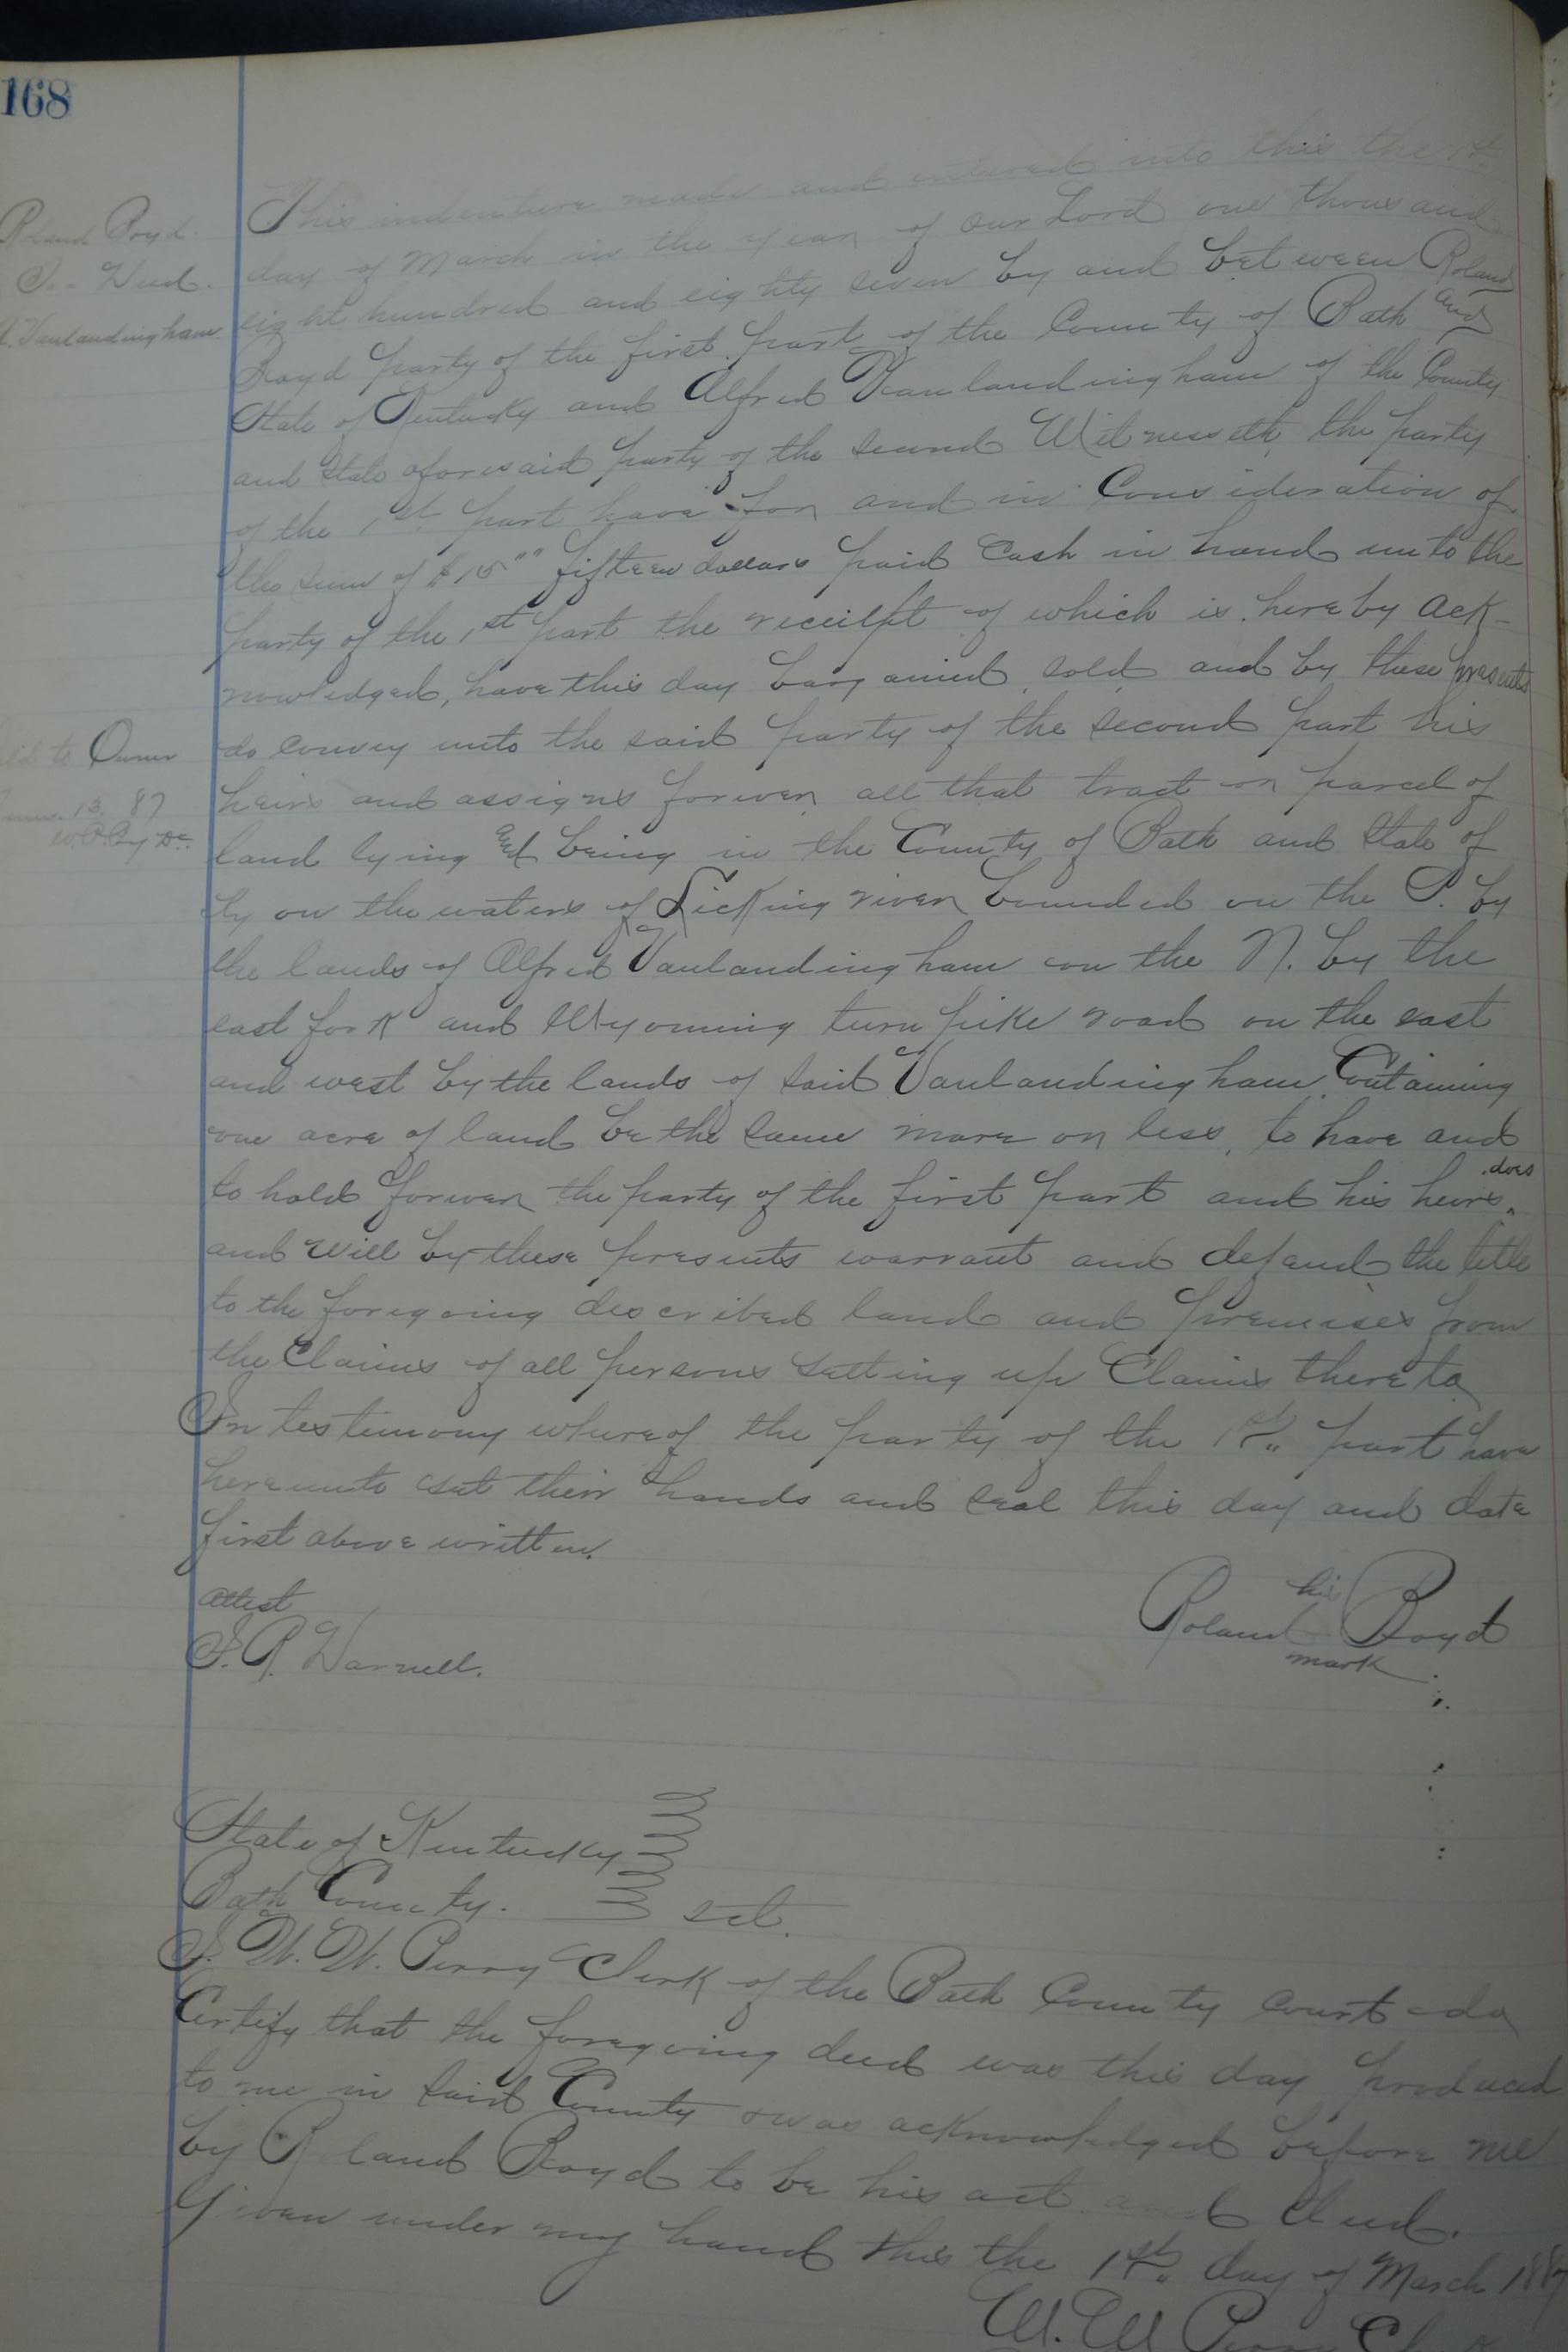 168
Roland Boyd.
To. Deed.
A. Vanlandingham
This indenture made and entered into this the 1st
day of March in the year of our Lord one thousand
eight hundred and eighty seven by and between Roland
Boyd party of the first part of the County of Bath and
State of Kentucky and Alfred Vanlandingham of the County
and State aforesaid party of the second Witnesseth, the party
of the 1st part have for and in Consideration of
the sum of $15"" fifteen dollars paid Cash in hand unto the
party of the 1st part the receipt of which is hereby ack-
nowledged, have this day bargained sold and by these presents
do convey unto the said party of the second part his
heirs and assigns forever all that tract or parcel of
land lying and being in the County of Bath and State of
Ky on the waters of Licking river bounded on the S. by
the lands of Alfred Vanlandingham on the N. by the
east fork and Wyoming turnpike road on the east
and west by the lands of said Vanlandingham, Containing
one acre of land be the same more or less, to have and
to hold forever the party of the first part and his heirs, does
and will by these presents warrant and defend the title
to the foregoing described land and premises from
the Claims of all persons setting up Claims thereto
In testimony whereof the party of the 1st" part have
hereunto set their hands and seal this day and date
first above written.
to Owner
13. 87
attest
Roland his Boyd
mark
Warnell.
State of Kentucky
Bath County. sct.
I. W. W. Perry Clerk of the Bath County court do
Certify that the foregoing deed was this day produced
to me in said County & was acknowledged before me
by Roland Boyd to be his act and deed.
Given under my hand this the 1st" day of March 1887
W. W. Perry